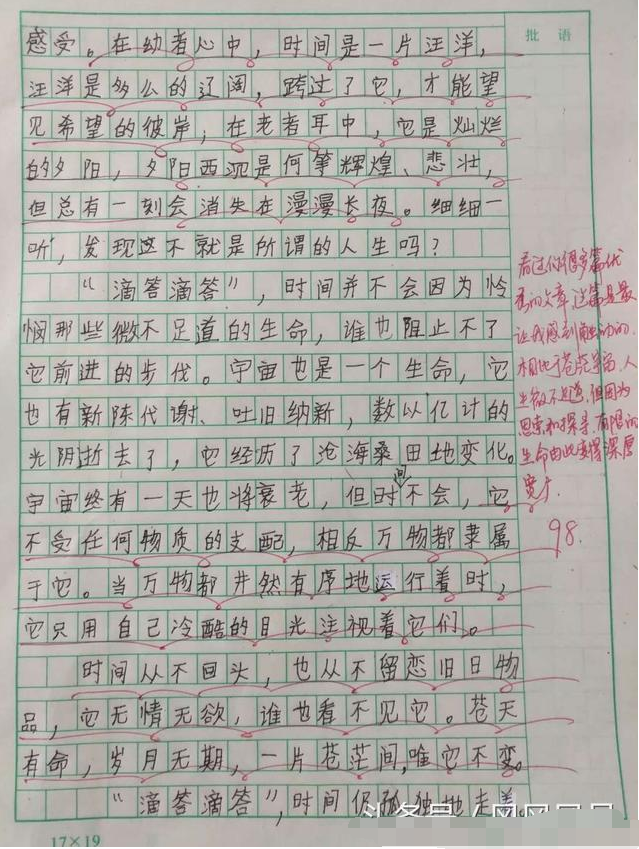 批语
感受。在幼者心中，时间是一片汪洋，
汪洋是多么的辽阔，跨过了它，才能望
见希望的彼岸，在老者耳中，它是灿烂
的夕阳，夕阳西沉是何等辉煌、悲壮，
但总有一刻会消失在漫漫长夜。细细一
听，发现这不就是所谓的人生吗？
“滴答滴答”，时间并不会因为怜
悯那些微不足道的生命，谁也阻止不了
它前进的步伐。宇宙也是一个生命，它
也有新陈代谢、吐旧纳新，数以亿计的
光阴逝去了，它经历了沧海桑田地变化。
宇宙终有一天也将衰老，但时间不会，它
不受任何物质的支配，相反万物都隶属
于它。当万物都井然有序地运行着时，
它只用自己冷酷的目光注视着它们。
时间从不回头，也从不留恋旧日物
品，它无情无欲，谁也看不见它。苍天
有命，岁月无期，一片苍茫间，唯它不变。
“滴答滴答”，时间仍孤独地走着。
看过你很多篇优
秀的文章，这篇是最
让我感到触动的，
相比于苍茫宇宙，人
生微不足道，但因为
思索和探寻，有限的
生命由此变得深厚
宽广。
98.
17×19
头条号